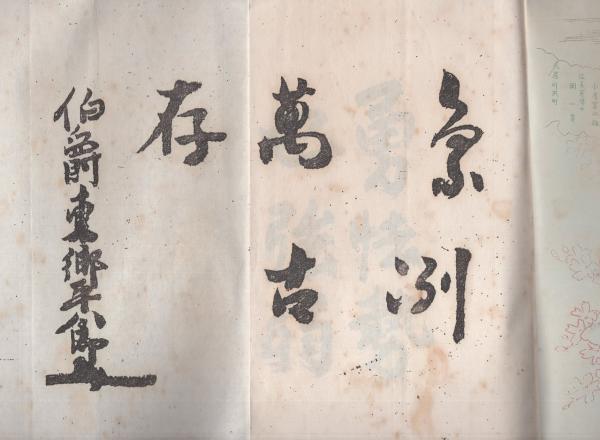 凛冽
萬古
存
伯爵東郷平八郎